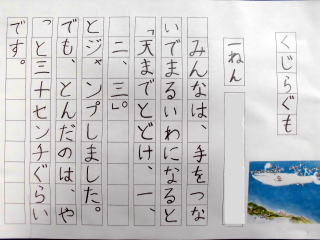 くじらぐも
一ねん
みんなは、手をつな
いでまるいわになると
「天までとどけ、一、
二、三。」
とジャンプしました。
でも、とんだのは、や
っと三十センチぐらい
です。